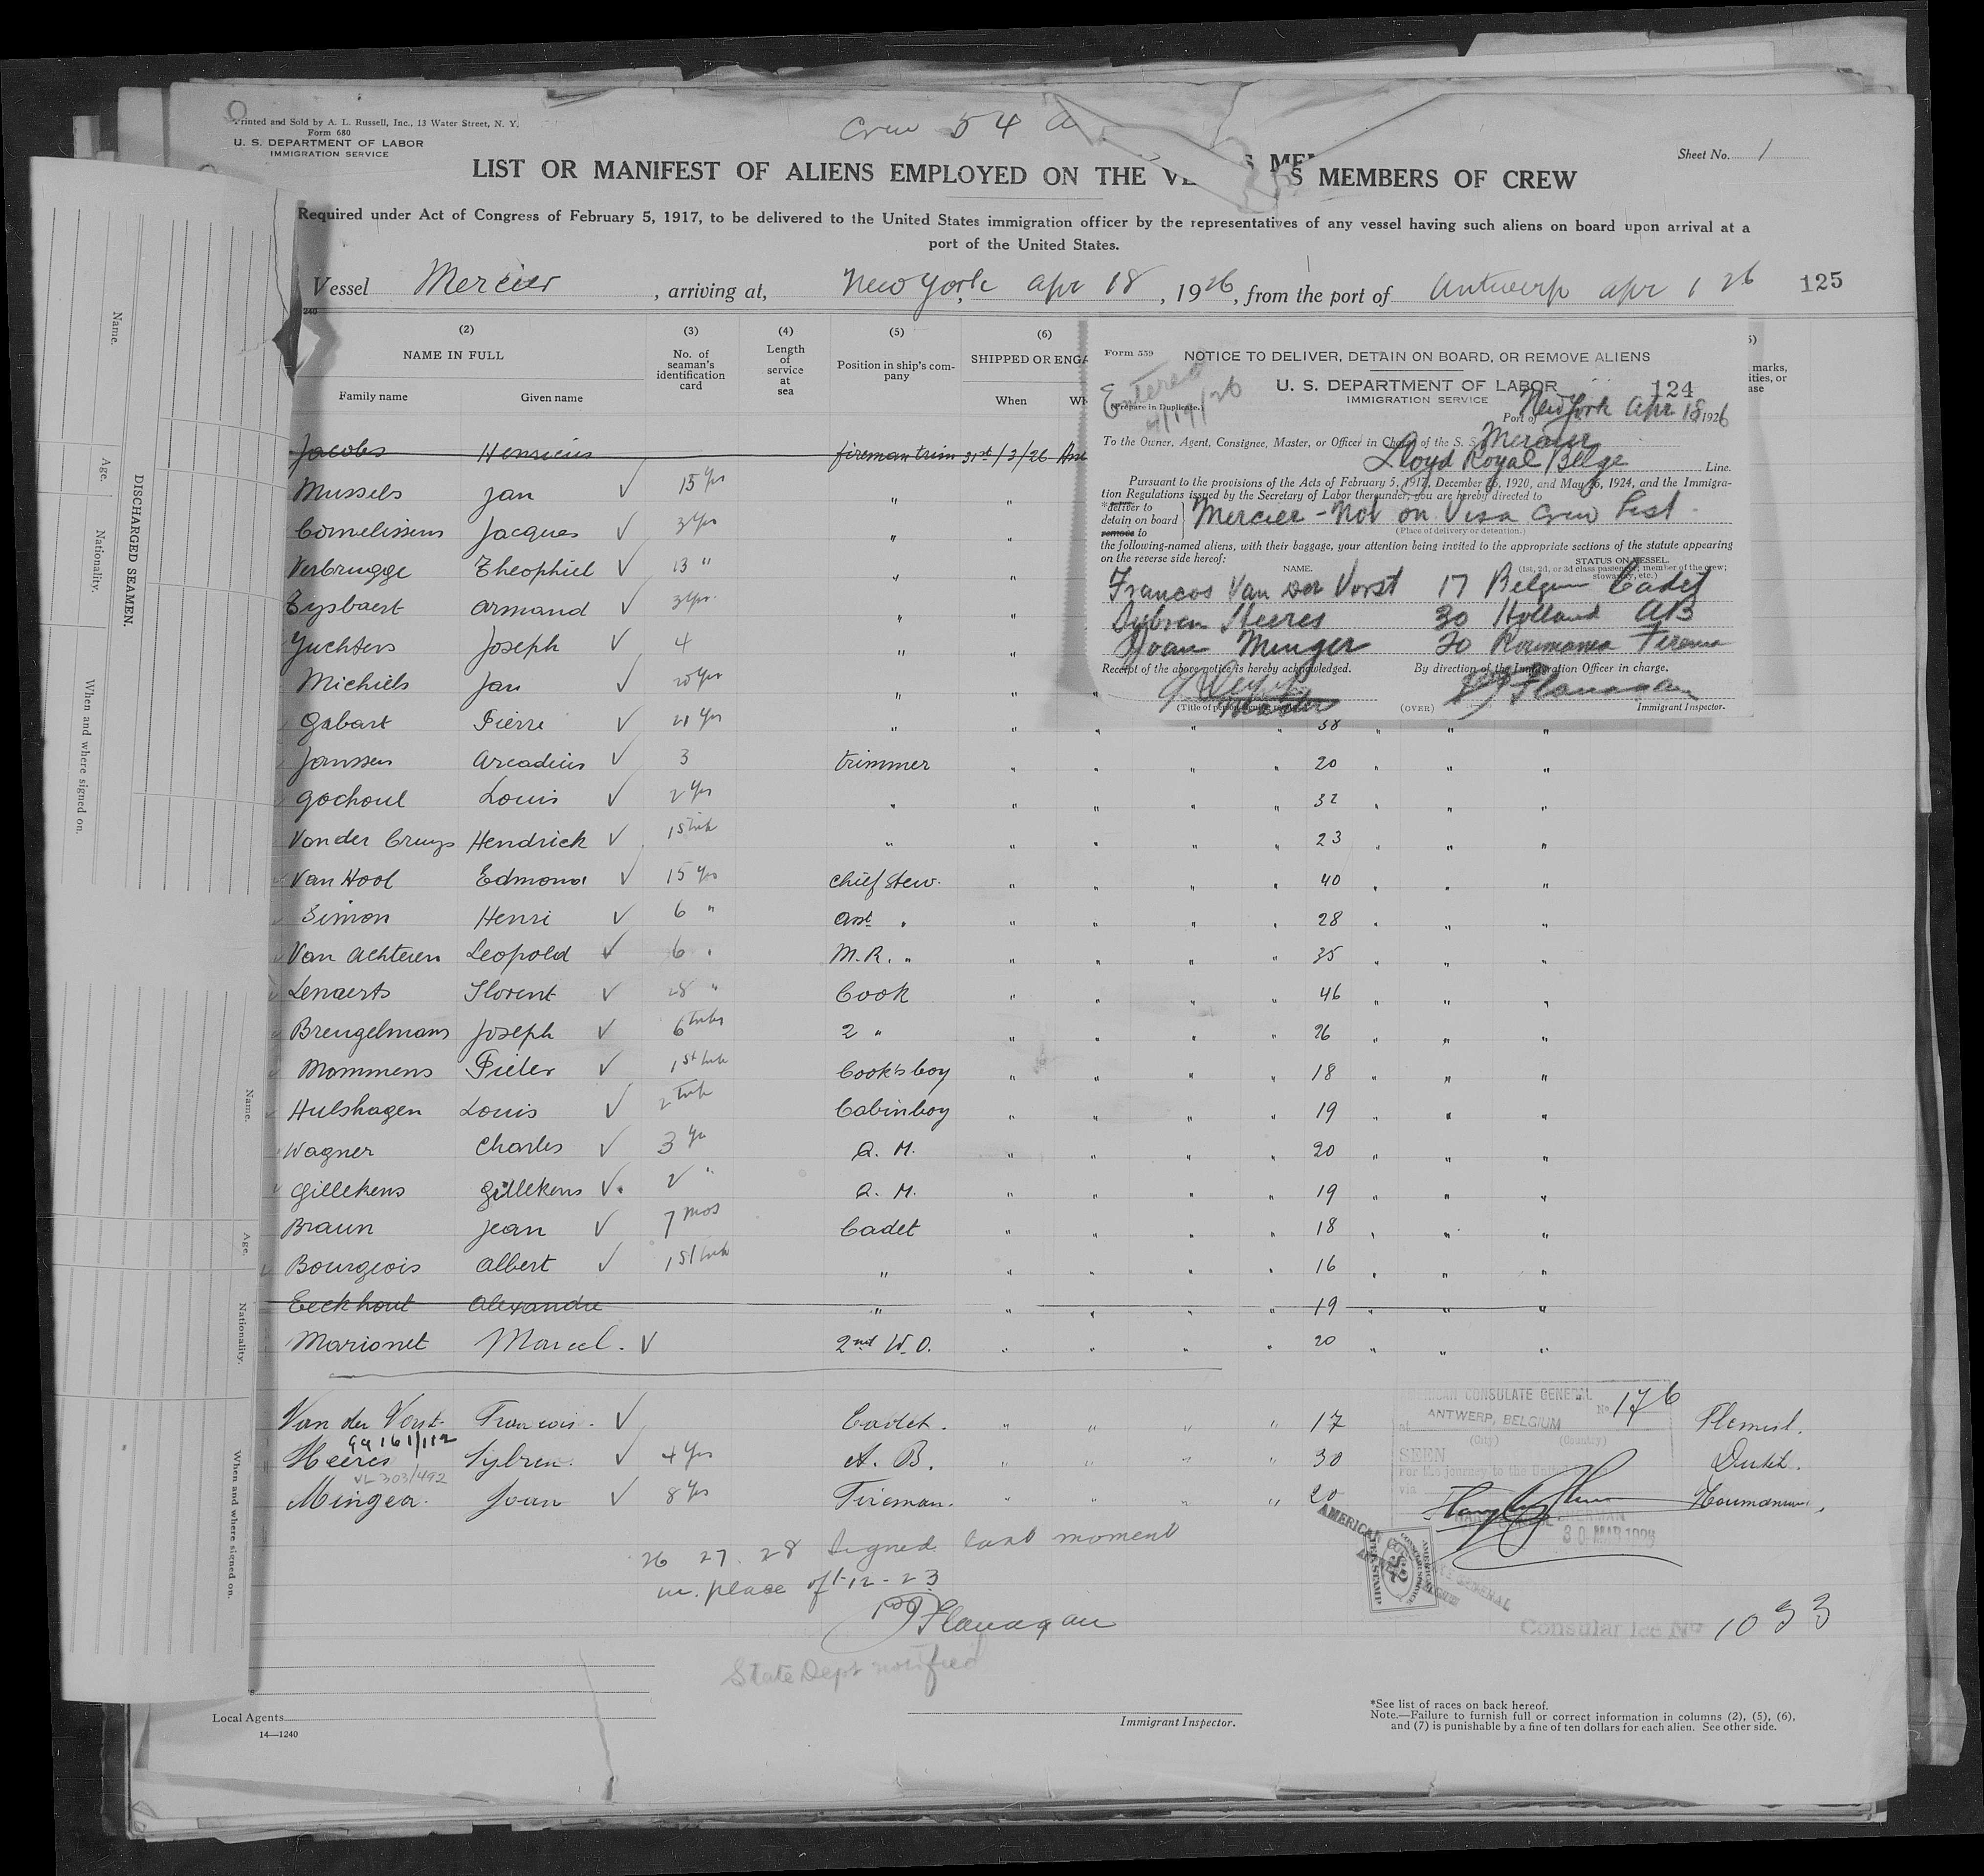 Printed and Sold by A. L. Russell, Inc., 13 Water Street, N. Y.
Form 680
U. S. DEPARTMENT OF LABOR
IMMIGRATION SERVICE
Crew 54 a
Sheet No. 1
LIST OR MANIFEST OF ALIENS EMPLOYED ON THE VE S MEMBERS OF CREW
Required under Act of Congress of February 5, 1917, to be delivered to the United States immigration officer by the representatives of any vessel having such aliens on board upon arrival at a
port of the United States.
Vessel Mercier, arriving at, New York, Apr 18, 1926, from the port of Antwerp Apr 1 26 125
240
(2) (3) (4) (5) (6)
NAME IN FULL
Family name Given name
No. of seaman's identification card
Length of service at sea
Position in ship's company
SHIPPED OR ENGA
When Wh
marks,
ities, or
ase
Jacobs Henricus fireman trim 31st/3/26
Mussels Jan √ 15 yrs " "
Cornelissens Jacques √ 3 yrs " "
Verbrugge Theophiel √ 13 " " "
Eysbaert Armand √ 3 yrs " "
Yuchters Joseph √ 4 " "
Michiels Jan √ 20 yrs " " "
Gabart Pierre √ 21 yrs " " " " " 38 " " "
Janssen Arcadius √ 3 trimmer " " " " 20 " " "
Gochoul Louis √ 2 yrs " " " " " 32 " " "
Van der Cruys Hendrick √ 1st trip " " " " " 23 " " "
Van Hool Edmond √ 15 yrs chief stew. " " " " 40 " " "
Simon Henri √ 6 " asst " " " " " 28 " " "
Van Achteren Leopold √ 6 " M.R. " " " " " 35 " " "
Lenaerts Florent √ 28 " Cook " " " " 46 " " "
Breugelmans Joseph √ 6 trips 2 " " " " " 26 " " "
Mommens Pieter √ 1st trip Cook's boy " " " " 18 " " "
Hulshagen Louis √ 2 trip Cabinboy " " " " 19 " " "
Wagner Charles √ 3 yr Q. M. " " " " 20 " " "
Gillekens Gillekens √ 2 " Q. M. " " " " 19 " " "
Braun Jean √ 7 mos Cadet " " " " 18 " " "
Bourgeois Albert √ 1st trip " " " " " 16 " " "
Eeckhout Alexandre " " " " " 19 " " "
Marionet Marcel. √ 2nd W.O. " " " " 20 " " "
Van der Vorst Francois. √ Cadet. " " " " 17 Flemish.
99161/112
Heeres Sybren. √ 4 yrs A. B. " " " " 30 Dutch.
VL 303/492
Mingea. Joan √ 8 yrs Fireman. " " " " 20 Roumanian.
26 27. 28 signed last moment
in place of 1-12-23
Flanagan
State Dept notified
Local Agents
14—1240
Immigrant Inspector.
*See list of races on back hereof.
Note.—Failure to furnish full or correct information in columns (2), (5), (6),
and (7) is punishable by a fine of ten dollars for each alien. See other side.
Form 559
NOTICE TO DELIVER, DETAIN ON BOARD, OR REMOVE ALIENS
Entered
4/19/26
(Prepare in Duplicate.)
U. S. DEPARTMENT OF LABOR 124
IMMIGRATION SERVICE
Port of New York Apr 18 1926
To the Owner, Agent, Consignee, Master, or Officer in Charge of the S. S. Mercier
Lloyd Royal Belge Line.
Pursuant to the provisions of the Acts of February 5, 1917, December 26, 1920, and May 26, 1924, and the Immigra-
tion Regulations issued by the Secretary of Labor thereunder, you are hereby directed to
*deliver to
detain on board
remove to
Mercier - Not on Visa Crew List.
(Place of delivery or detention.)
the following-named aliens, with their baggage, your attention being invited to the appropriate sections of the statute appearing
on the reverse side hereof:
NAME. STATUS ON VESSEL.
(1st, 2d, or 3d class passenger; member of the crew; stowaway, etc.)
Francos Van Der Vorst 17 Belgium Cadet
Sybren Heeres 30 Holland AB
Joan Minger 20 Roumania Fireman
Receipt of the above notice is hereby acknowledged. By direction of the Immigration Officer in charge.
Master
Flanagan
(Title of person (OVER) Immigrant Inspector.
AMERICAN CONSULATE GENERAL
No. 176
at ANTWERP, BELGIUM
(City) (Country)
SEEN
For the journey to the United
via
30 MAR 1926
AMERICAN
$2
Consular fee No 1033
DISCHARGED SEAMEN.
Name. Age. Nationality. When and where signed on.
Name. Age. Nationality. When and where signed on.